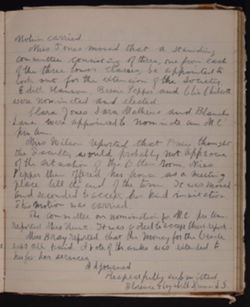 Motion carried.
Miss Jones moved that a standing
committee, consisting of three, one from each
of the three lower classes, be appointed to
look out for the extension of the Society.
Edith Hanson, Pepper and
were nominated and elected.
Clara Jones, Sara Mathews and Blanche
Lane were appointed to nominate an M.C.
pro tem.
Miss Wilson reported that Miss thought
the Faculty would probably not approve
of the the room. Miss
Pepper then offered her home as a meeting
place till the end of the term. It was moved
and seconded to accept her kind invitation.
The motion was carried.
The committee on nomination for M.C. pro tem
reported Miss Hunt. It was voted to accept their report.
Miss Bray reported that the money for the
was all paid. A vote of thanks was extended to
her for her services.
Adjourned
Respectfully submitted
Florence Elizabeth